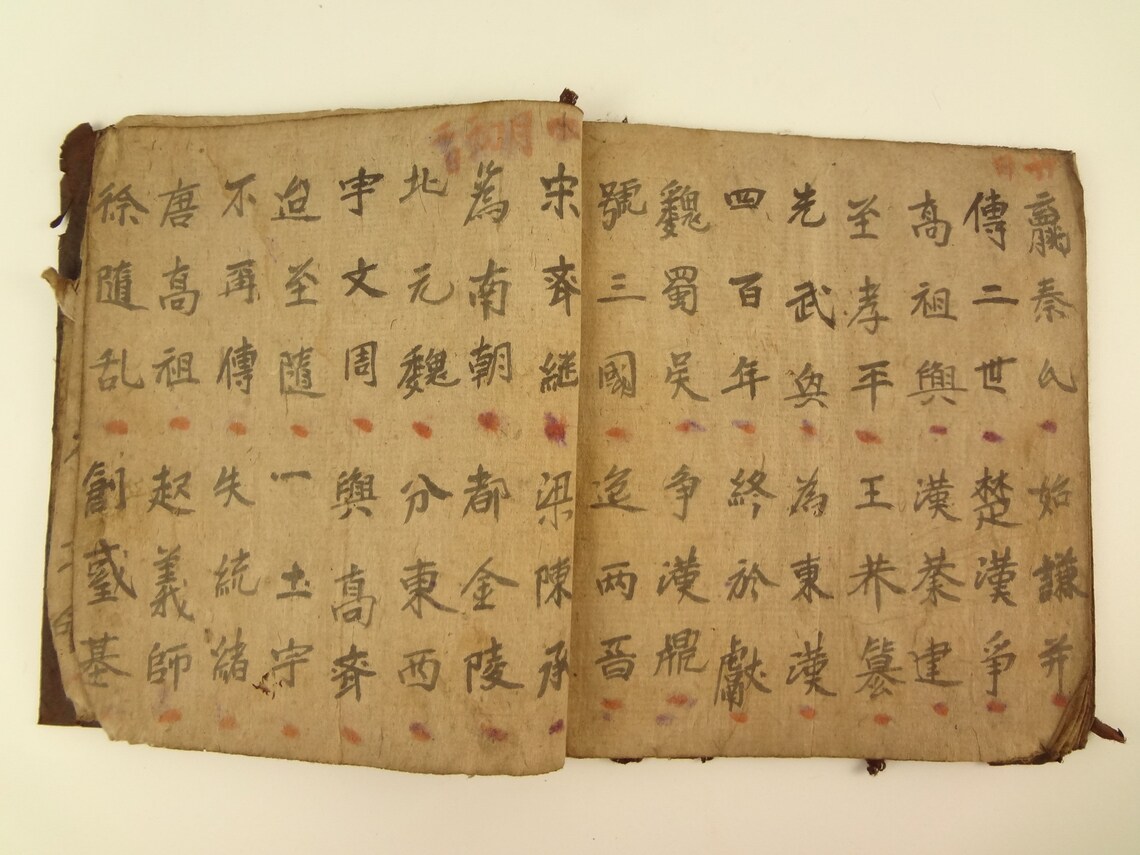 嬴秦氏 始謙并
傳二世 楚漢爭
高祖興 漢業建
至孝平 王莽篡
先武興 為東漢
四百年 終於獻
魏蜀吳 争漢鼎
號三國 迄两晉
宋齊繼 梁陳承
為南朝 都金陵
北元魏 分東西
宇文周 與高齊
迨至隨 一土宇
不再傳 失統緒
唐高祖 起義師
徐隨乱 創國基